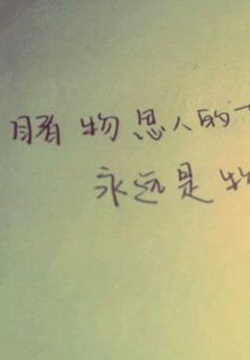 睹物思人的
永远是物